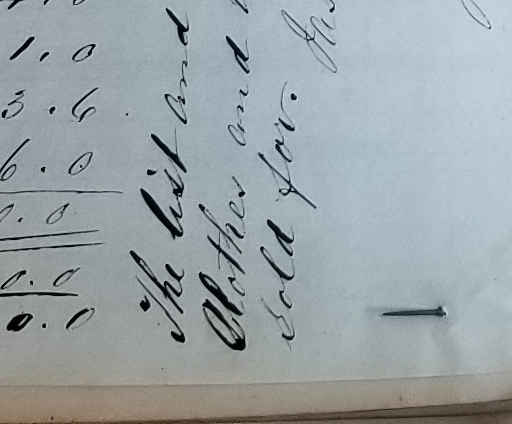 1.0
3.6
6.0
0.0
0.0
The list and
Clothes and
sold for.